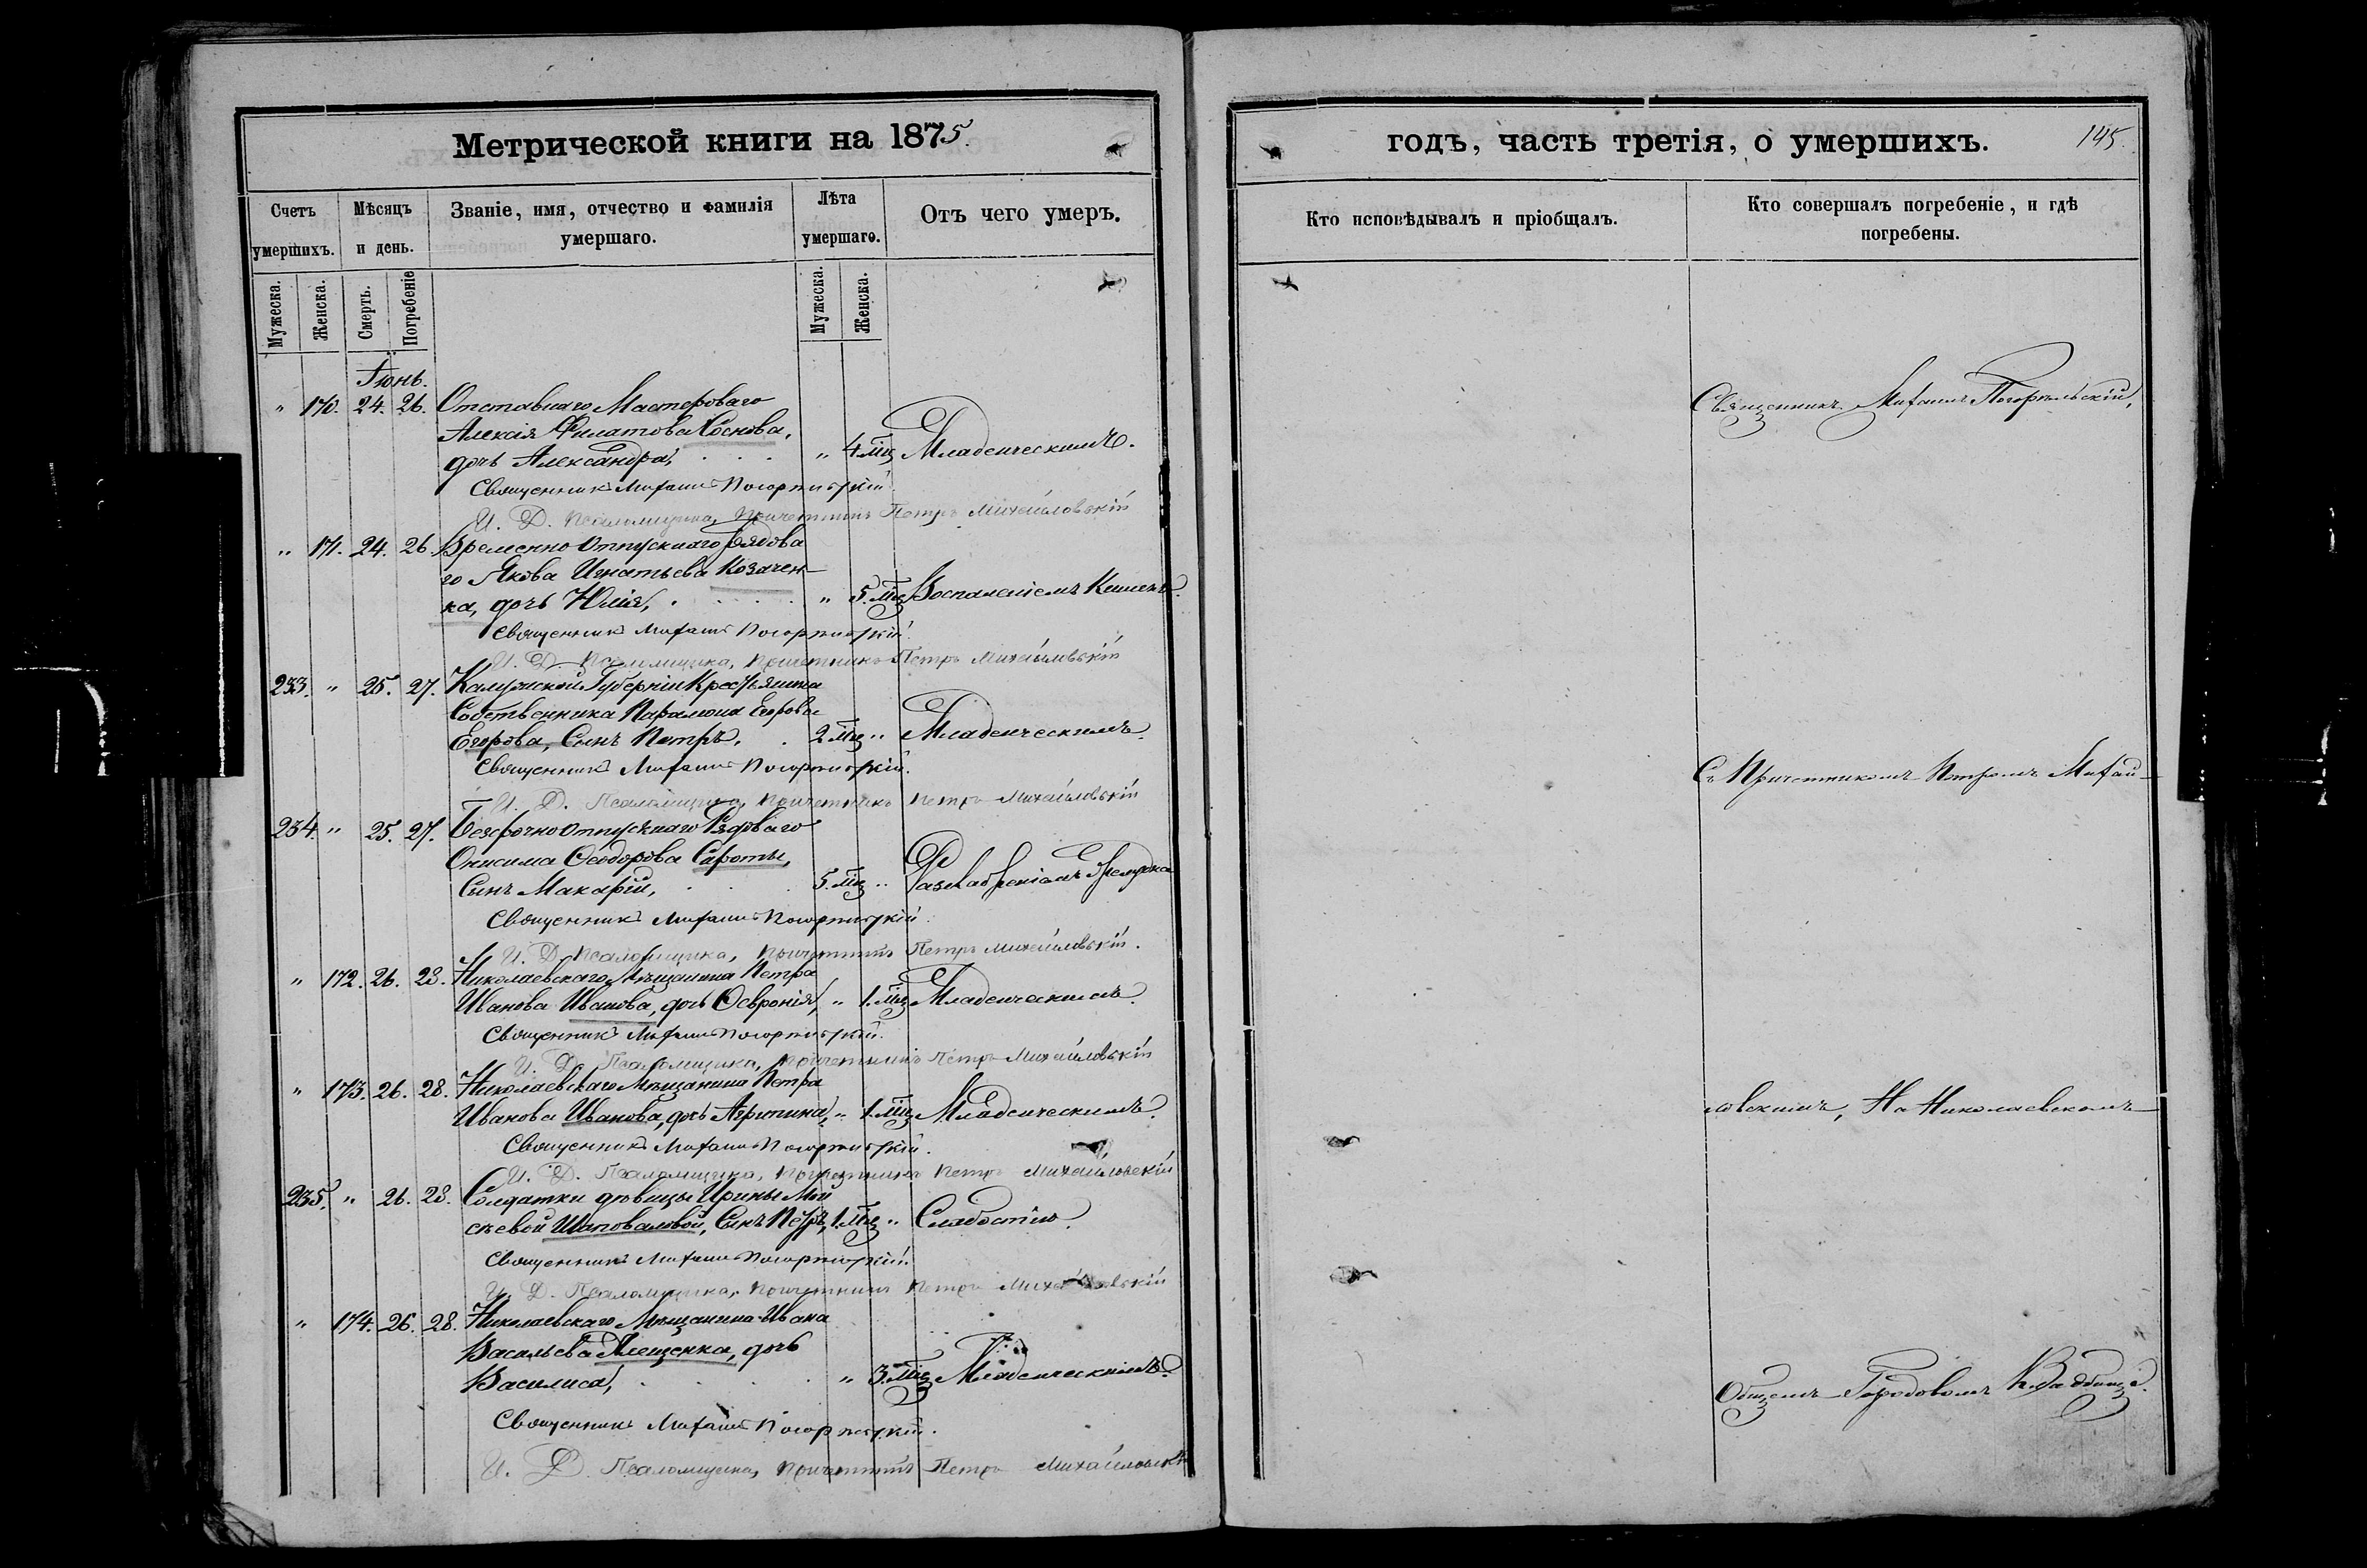 Метрической книги на 1875.
Счетъ умершихъ.
Мѣсяцъ и день.
Званіе, имя, отчество и фамилія умершаго.
Лѣта умершаго.
Отъ чего умеръ.
Мужеска.
Женска.
Смерть.
Погребеніе
Мужеска.
Женска.
Іюнь.
" 170. 24. 26. Отставнаго Мастероваго
Алексія Филатова Соснова,
дочь Александра, " 4. мц Младенческимъ.
Священникъ Михаилъ Погорѣльскій
И. Д. Псаломщика, Причетникъ Петръ Михайловскій
" 171. 24. 26. Временно отпускнаго рядова
го Якова Игнатьева Козачен-
ка, дочь Юлія, " 5. мц Воспаленіемъ Кишекъ.
Священникъ Михаилъ Погорѣльскій.
И. Д. Псаломщика, Причетникъ Петръ Михайловскій
233. " 25. 27. Калужской Губерніи Крестьянина
Собственника Парамона Егорова
Егорова, Сынъ Петръ. 2 мц " Младенческимъ.
Священникъ Михаилъ Погорѣльскій.
И. Д. Псаломщика, Причетникъ Петръ Михайловскій
234. " 25. 27. Безсрочно отпускнаго Рядоваго
Онисима Ѳеодорова Сироты,
Сынъ Макарій, 5. мц "
Священникъ Михаилъ Погорѣльскій.
И. Д. Псаломщика, Причетникъ Петръ Михайловскій.
" 172. 26. 28. Николаевскаго Мѣщанина Петра
Иванова Иванова, дочь Ѳевронія, " 1. мц Младенческимъ.
Священникъ Михаилъ Погорѣльскій.
И. Д. Псаломщика, Причетникъ Петръ Михайловскій
" 173. 26. 28. Николаевскаго Мѣщанина Петра
Иванова Иванова, дочь Агрипина, " 1. мц Младенческимъ.
Священникъ Михаилъ Погорѣльскій.
И. Д. Псаломщика, Причетникъ Петръ Михайловскій
235. " 26. 28. Солдатки дѣвицы Ирины Мой
сѣевой Шаповаловой, Сынъ Петръ, 1. мц " Слабостію.
Священникъ Михаилъ Погорѣльскій.
И. Д. Псаломщика, Причетникъ Петръ Михайловскій
" 174. 26. 28. Николаевскаго Мѣщанина Ивана
Васильева дочь
Василиса, " 3. мц Младенческимъ.
Священникъ Михаилъ Погорѣльскій.
И. Д. Псаломщика, Причетникъ Петръ Михайловскій
годъ, часть третія, о умершихъ.
145.
Кто исповѣдывалъ и пріобщалъ.
Кто совершалъ погребеніе, и гдѣ погребены.
Священникъ Михаилъ Погорѣльскій,
Съ Причетникомъ Петромъ Михай-
ловскимъ, На Николаевскомъ
Общемъ Городовомъ Кладбищѣ.